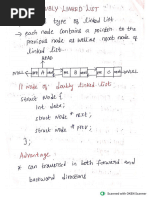 DOUBLY LINKED LIST :
type of linked list
→ each node contains a pointer to the
previous node as well as next node of
linked list.
HEAD
NULL
A node of doubly linked list:
struct Node {
int data;
struct Node * next;
struct Node * prev;
};
Advantage
* can traversed in both forward and
backward directions
Scanned with OKEN Scanner